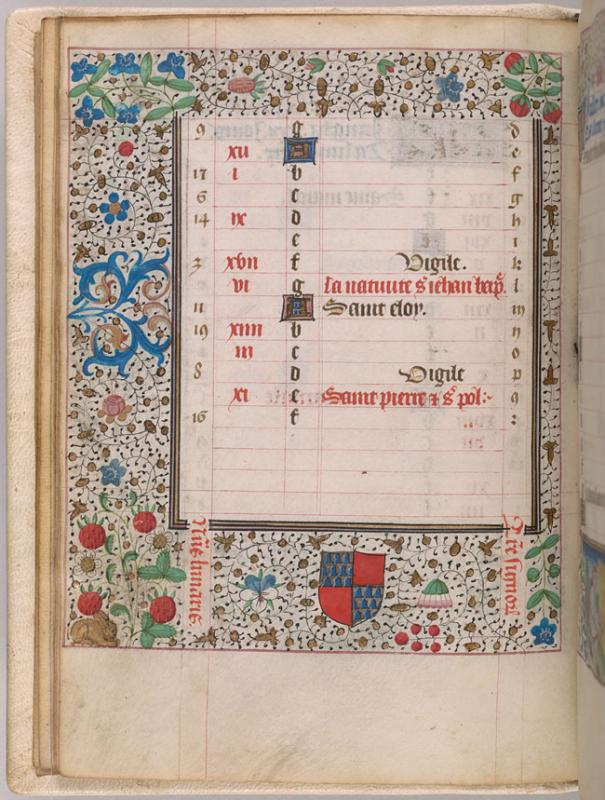 9 g d
xii A e
17 i b f
6 c g
14 ix d h
e i
3 xvii f Vigile. k
vi g La natiuite s̉ iehan bap̉. l
11 A Saint eloy. m
19 xiiii b n
iii c o
8 d Vigile p
xi e Saint pierre ⁊ s̉ pol:~ q
16 f :
lunaris